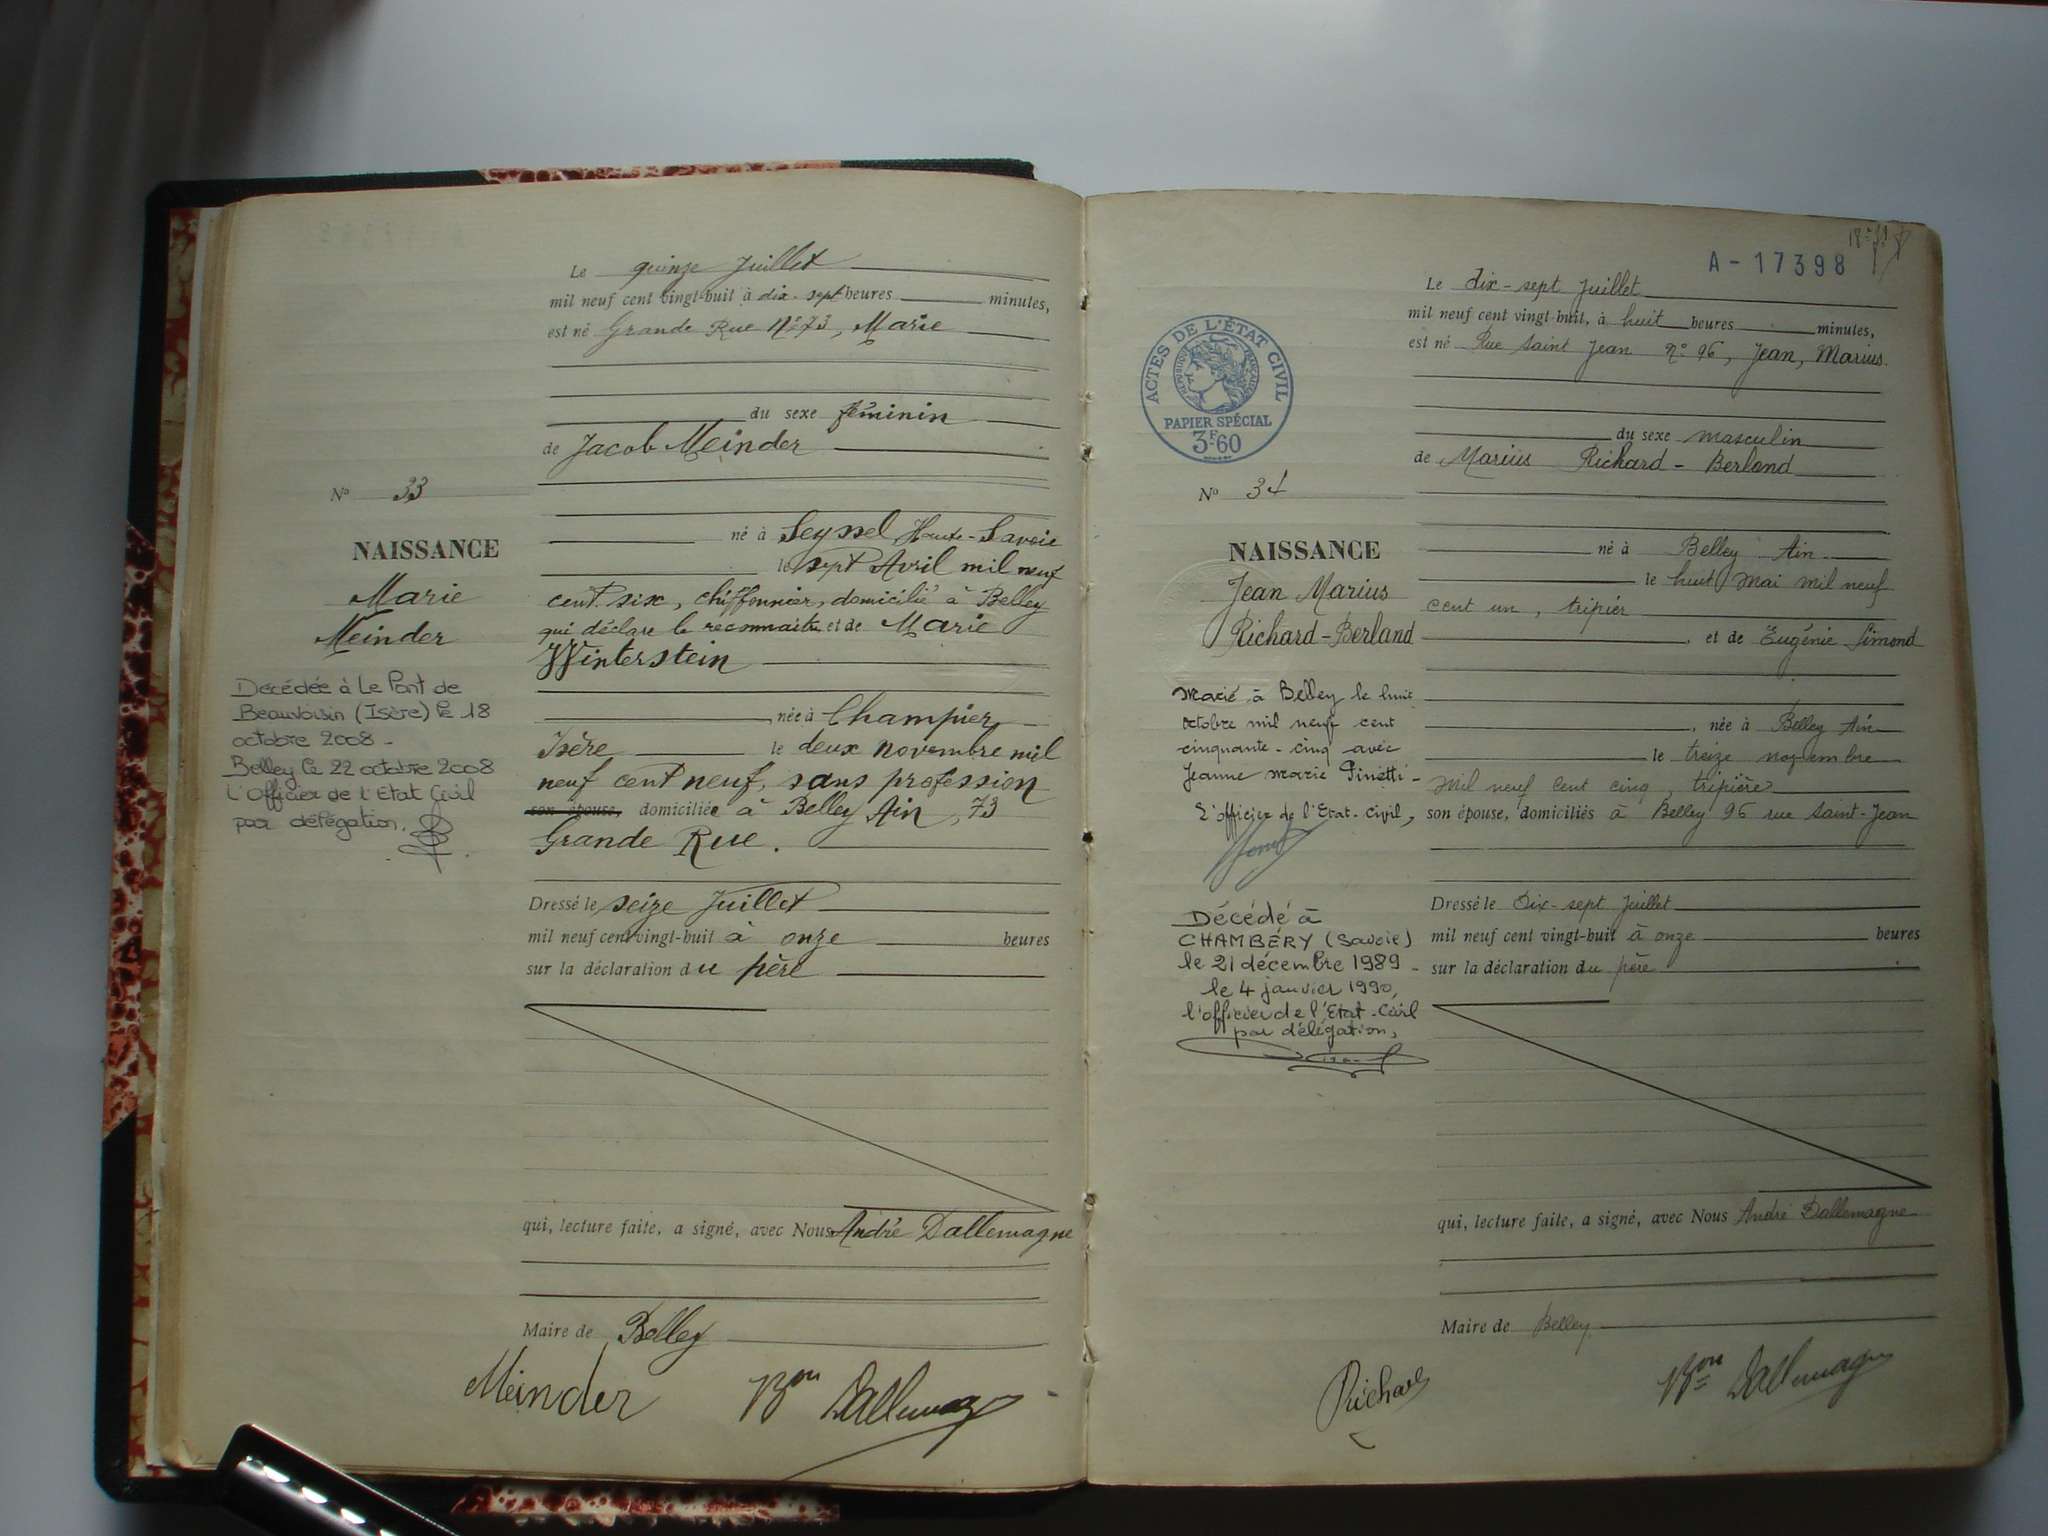 Le quinze Juillet
mil neuf cent vingt-huit à dix-sept heures minutes,
est né Grande Rue N° 73, Marie
du sexe féminin
de Jacob Meinder
N° 33
né à Seyssel Haute-Savoie
NAISSANCE
le sept Avril mil neuf
Marie
cent six, chiffonnier, domicilié à Belley
Meinder
qui déclare le reconnaitre et de Marie
Winterstein
Décédée à Le Pont de
Beauvoisin (Isère) le 18
octobre 2008 -
Belley le 22 octobre 2008
L'Officier de l'Etat Civil
par délégation.
née à Champier
Isère le deux novembre mil
neuf cent neuf, sans profession
son épouse, domiciliée à Belley Ain, 73
Grande Rue.
Dressé le seize Juillet
mil neuf cent vingt-huit à onze heures
sur la déclaration du père
qui, lecture faite, a signé, avec Nous André Dallemagne
Maire de Belley
Meinder Bon Dallemagne
A-17398
Le dix-sept Juillet
mil neuf cent vingt-huit, à huit heures minutes,
est né Rue Saint Jean N° 96, Jean, Marius.
ACTES DE L'ÉTAT CIVIL
RÉPUBLIQUE FRANÇAISE
PAPIER SPÉCIAL
3F60
du sexe masculin
de Marius Richard-Berland
N° 34
né à Belley Ain
NAISSANCE
le huit Mai mil neuf
Jean Marius
cent un, tripier
Richard-Berland
et de Eugénie Simond
Marié à Belley le huit
octobre mil neuf cent
cinquante-cinq avec
Jeanne Marie Pinetti -
L'officier de l'Etat-Civil,
née à Belley Ain
le treize novembre
mil neuf cent cinq, tripière
son épouse, domiciliés à Belley 96 rue Saint-Jean
Décédé à
CHAMBÉRY (Savoie)
le 21 décembre 1989 -
le 4 janvier 1990,
l'officier de l'Etat-Civil
par délégation,
Dressé le Dix-sept Juillet
mil neuf cent vingt-huit à onze heures
sur la déclaration du père
qui, lecture faite, a signé, avec Nous André Dallemagne
Maire de Belley
Richard Bon Dallemagne